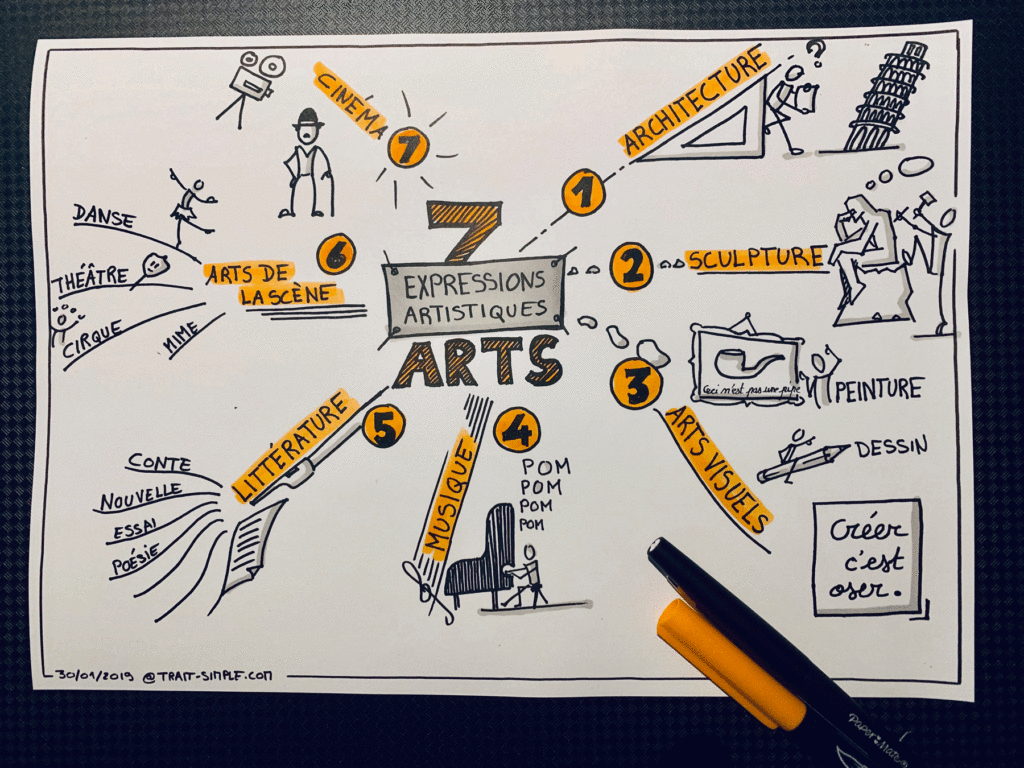 7
EXPRESSIONS
ARTISTIQUES
ARTS
1
ARCHITECTURE
?
2
SCULPTURE
3
ARTS VISUELS
Ceci n'est pas une pipe
PEINTURE
DESSIN
Créer
c'est
oser.
4
MUSIQUE
POM
POM
POM
POM
5
LITTÉRATURE
CONTE
NOUVELLE
ESSAI
POÉSIE
6
ARTS DE
LA SCÈNE
DANSE
THÉÂTRE
CIRQUE
MIME
7
CINÉMA
30/01/2019 @TRAIT-SIMPLE.COM
Paper Mate